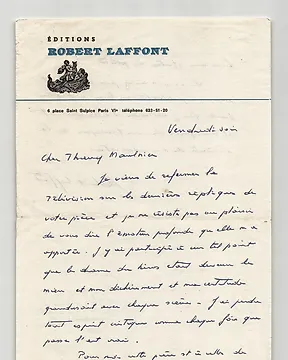 ÉDITIONS
ROBERT LAFFONT
6 place Saint Sulpice Paris VIe téléphone 633-51-20
Vendredi soir
Cher Thierry Maulnier
Je viens de refermer la
télévision sur les dernières répliques de
votre pièce et je ne résiste pas au plaisir
de vous dire l'émotion profonde qu'elle m'a
apportée. J'y ai participé à un tel point
que le drame des héros était devenu le
mien et mon déchirement et mon
grandissait avec chaque scène. J'ai perdu
tout esprit critique comme chaque fois que
passe l'art vrai.
Pour moi votre pièce est celle de